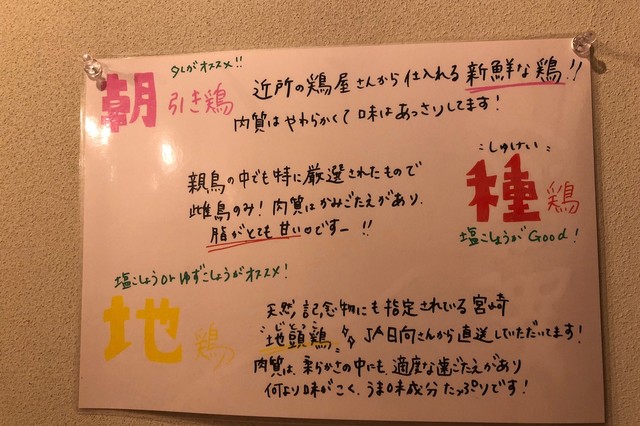 タレがオススメ!!
朝引き鶏
近所の鶏屋さんから仕入れる新鮮な鶏!!
肉質はやわらかくて味はあっさりしてます!
しゅけい
種鶏
塩こしょうがGood!
親鳥の中でも特に厳選されたもので
雌鳥のみ!肉質はかみごたえがあり、
脂がとても甘いですー!!
塩こしょうorゆずこしょうがオススメ!
地鶏
天然記念物にも指定されている宮崎
じとっこ
"地頭鶏"をJA日向さんから直送していただいてます!
肉質は、柔らかさの中にも、適度な歯ごたえがあり
何より味がこく、うま味成分たっぷりです!